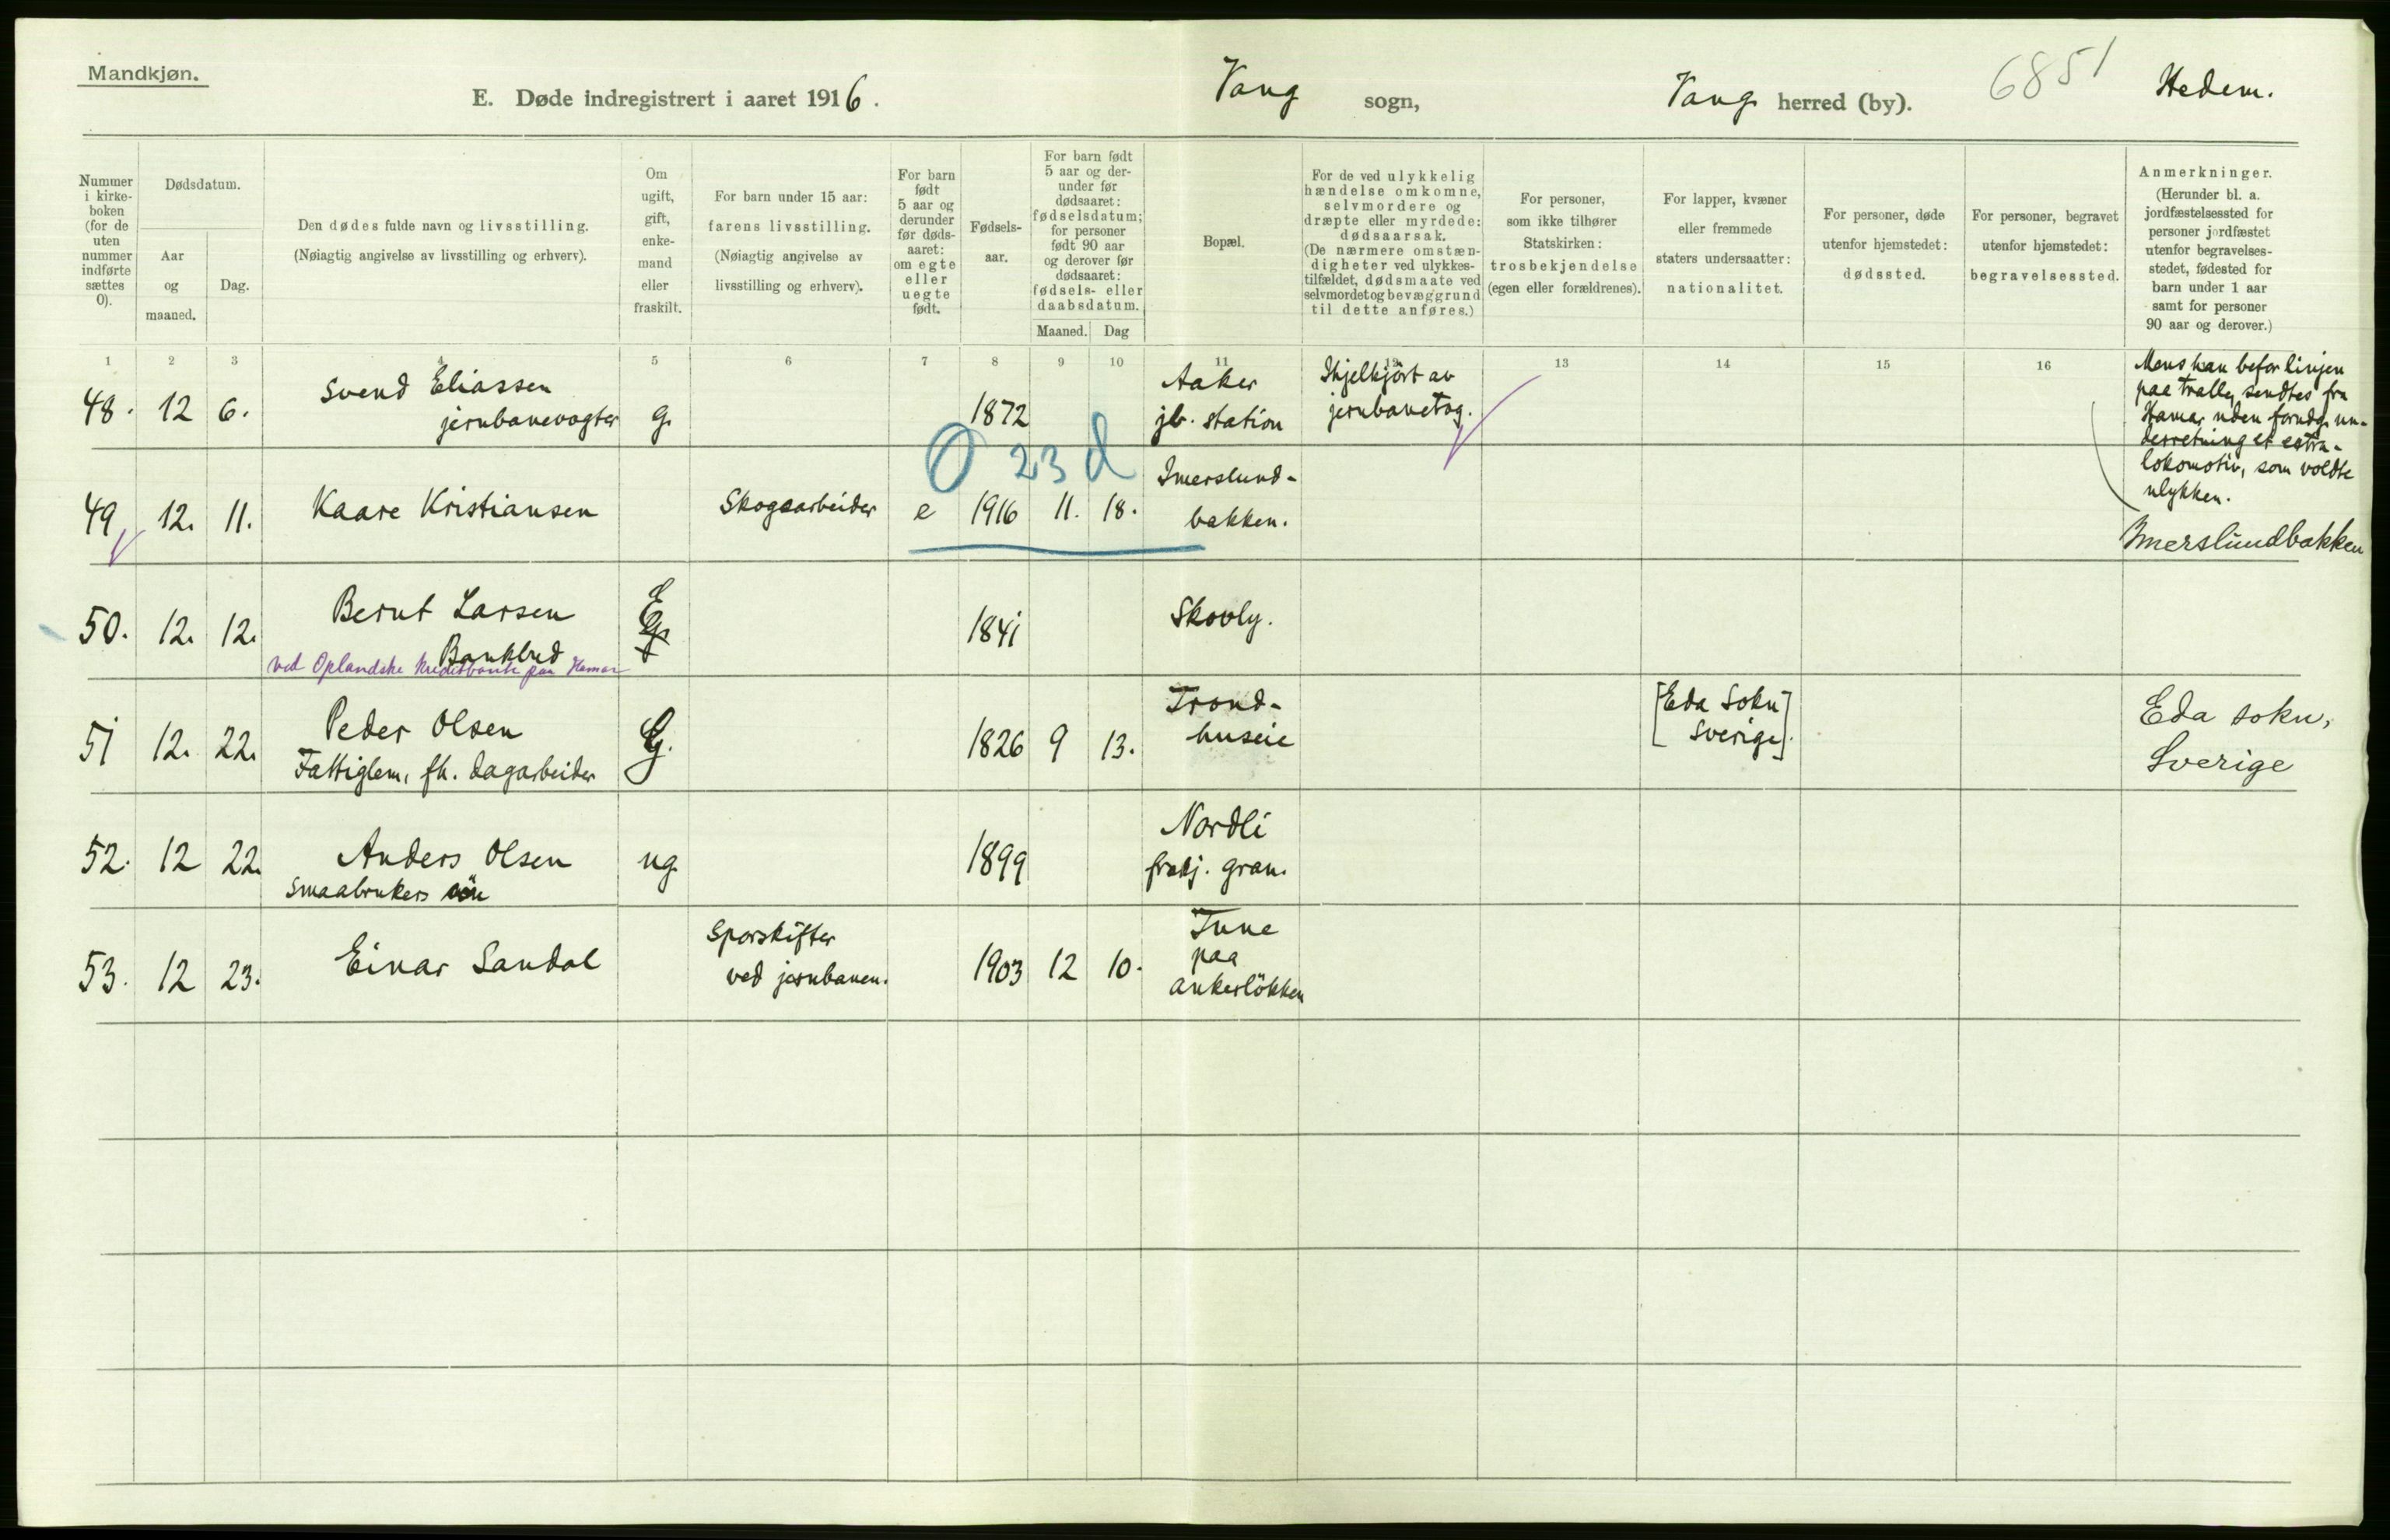 Mandkjøn.
E. Døde indregistrert i aaret 1916.
Vang sogn,
Vang herred (by).
6851
Hedem.
Nummer
i kirke-
boken
(for de
uten
nummer
indførte
sættes
0).
Dødsdatum.
Aar
og
maaned.
Dag.
Den dødes fulde navn og livsstilling.
(Nøiagtig angivelse av livsstilling og erhverv).
Om
ugift,
gift,
enke-
mand
eller
fraskilt.
For barn under 15 aar:
farens livsstilling.
(Nøiagtig angivelse av
livsstilling og erhverv).
For barn
født
5 aar og
derunder
før døds-
aaret:
om egte
eller
uegte
født.
Fødsels-
aar.
For barn født
5 aar og der-
under før
dødsaaret:
fødselsdatum;
for personer
født 90 aar
og derover før
dødsaaret:
fødsels- eller
daabsdatum.
Maaned. Dag
Bopæl.
For de ved ulykkelig
hændelse omkomne,
selvmordere og
dræpte eller myrdede:
dødsaarsak.
(De nærmere omstæn-
digheter ved ulykkes-
tilfældet, dødsmaate ved
selvmordet og bevæggrund
til dette anføres.)
For personer,
som ikke tilhører
Statskirken:
trosbekjendelse
(egen eller forældrenes).
For lapper, kvæner
eller fremmede
staters undersaatter:
nationalitet.
For personer, døde
utenfor hjemstedet:
dødssted.
For personer, begravet
utenfor hjemstedet:
begravelsessted.
Anmerkninger.
(Herunder bl. a.
jordfæstelsessted for
personer jordfæstet
utenfor begravelses-
stedet, fødested for
barn under 1 aar
samt for personer
90 aar og derover.)
1 2 3 4 5 6 7 8 9 10 11 12 13 14 15 16
48. 12 6.
Svend Eliassen
jernbanevogter
g.
1872
Aaker
jb. station
Ihjelkjørt av
jernbanetog.
Mens han befor linjen
paa tralle, sendtes fra
Hamar uden forudg. un-
derretning et extra-
lokomotiv, som voldte
ulykken.
0 23 d
49 12. 11.
Kaare Kristiansen
Skogsarbeider
e 1916 11. 18.
Imerslund-
bakken.
Imerslundbakken
50. 12. 12.
Bernt Larsen
Bankbud
ved Oplandske Kreditbank paa Hamar
E
1841
Skovly.
51 12. 22.
Peder Olsen
Fattiglem, fh. dagarbeider
G.
1826 9 13.
Trond-
huseie
[Eda Sokn
Sverige].
Eda sokn,
Sverige
52. 12 22.
Anders Olsen
Smaabrukers søn
ug.
1899
Nordli
fraskj. gran.
53. 12 23.
Einar Sandal
Sporskifter
ved jernbanen.
1903 12 10.
Tune
paa
ankerløkken